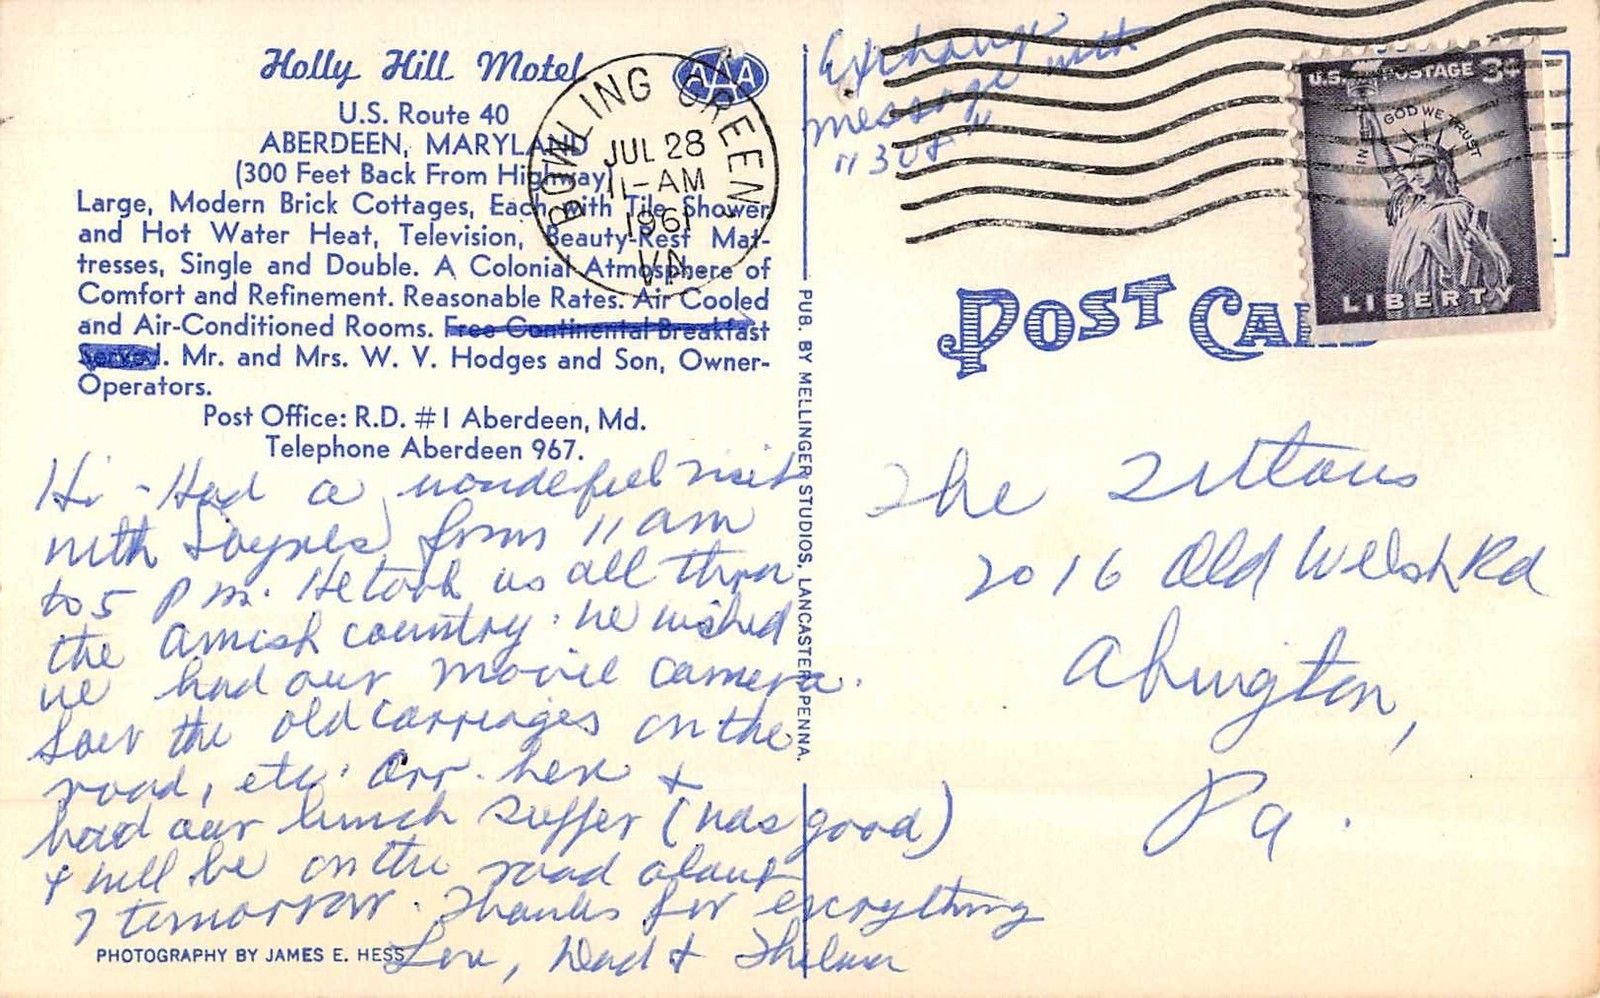 Holly Hill Motel
AAA
U.S. Route 40
ABERDEEN, MARYLAND
(300 Feet Back From Highway)
Large, Modern Brick Cottages, Each with Tile Shower
and Hot Water Heat, Television, Beauty-Rest Mat-
tresses, Single and Double. A Colonial Atmosphere of
Comfort and Refinement. Reasonable Rates. Air Cooled
and Air-Conditioned Rooms. Free Continental Breakfast
Served. Mr. and Mrs. W. V. Hodges and Son, Owner-
Operators.
Post Office: R.D. #1 Aberdeen, Md.
Telephone Aberdeen 967.
BOWLING GREEN,
JUL 28
11-AM
1961
VA.
Hi - Had a wonderful visit
with from 11 am
to 5 P m. He took us all thru
the Amish country. We wished
we had our movie camera.
Saw the old carriages on the
road, etc. Arr. here &
had our lunch supper (was good)
& will be on the road about
7 tomorrow. Thanks for everything
Love, Dad & Thelma
PHOTOGRAPHY BY JAMES E. HESS
PUB. BY MELLINGER STUDIOS, LANCASTER, PENNA.
Exchange
message with
U.S. POSTAGE 3¢
IN GOD WE TRUST
LIBERTY
POST CARD
The
2016 Old Welsh Rd
Abington,
Pa.